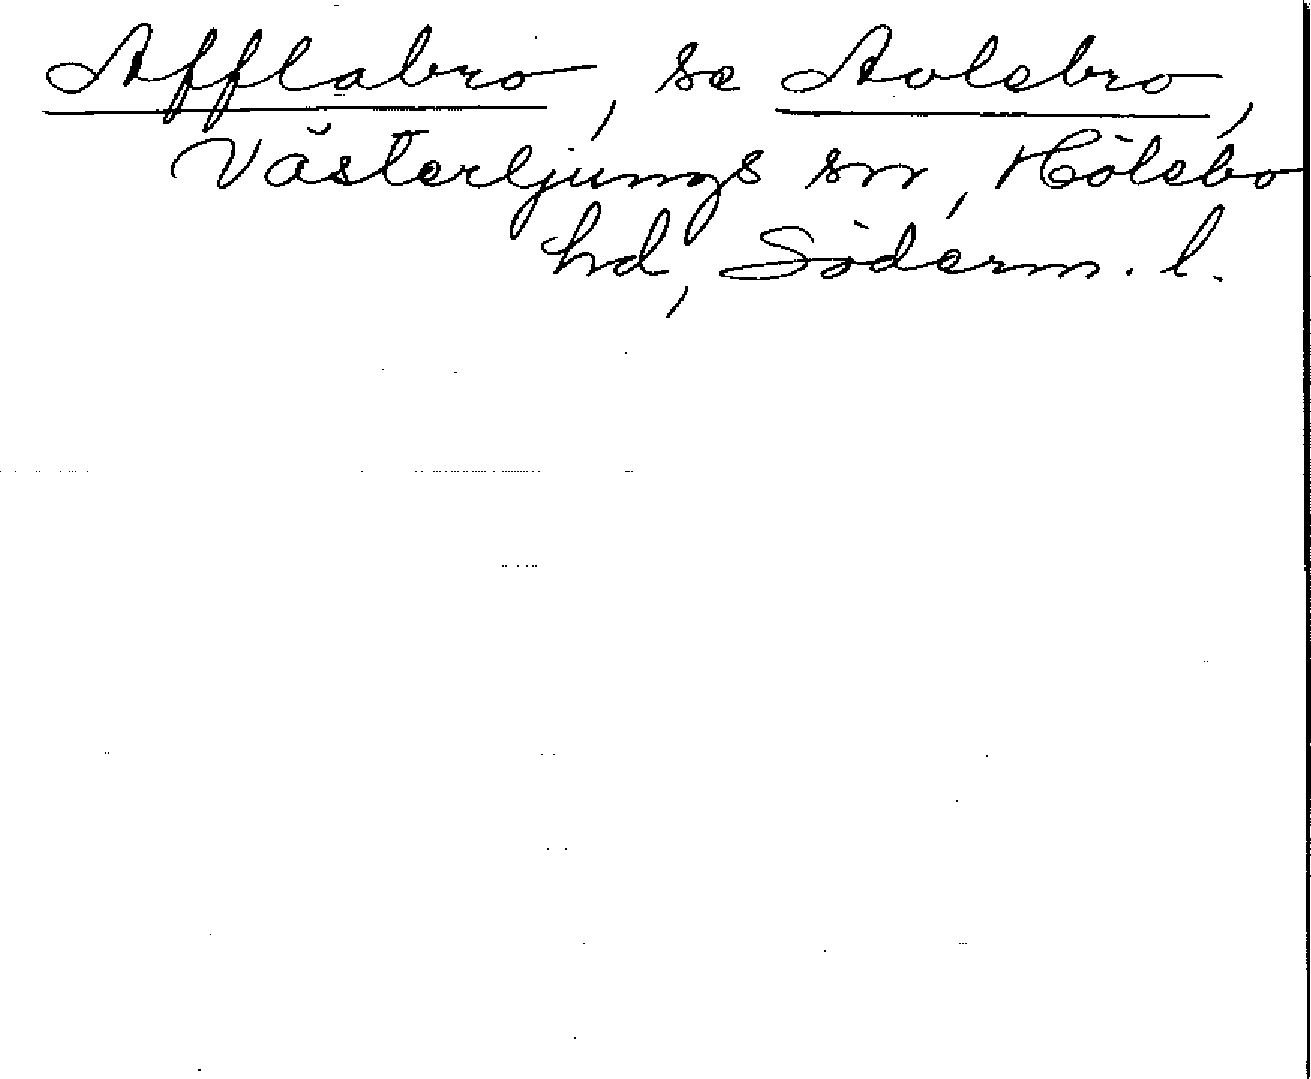 Afflabro, se Avlebro,
Västerljungs sn, Hölebo
hd, Söderm. l.